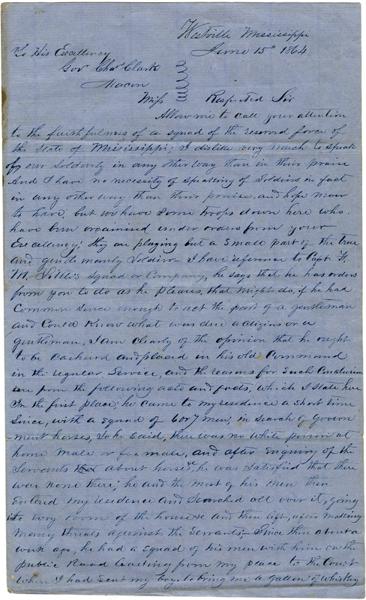 Westville Mississippi
June 15th 1864
To His Excellency
Gov Chas Clark
Macon
Miss Respected Sir
Allow me to call your attention
to the faithfulness of a squad of the reserved force of
the State of Mississippi; I dislike very much to speak
of our Soldiers in any other way than in their praise
And I have no necessity of speaking of Soldiers in fact
in any other way than their praise, and hope never
to have, but we have some troops down here who
have been organised under orders from your
Excellency; they are playing but a small part of the true
and gentlemanly Soldier I have reference to Capt
Squad or Company, he says that he has orders
from you to do as he pleases, that might do, if he had
Common Sense enough to act the part of a gentleman
and could know what was due a citizen or a
gentleman, I am clearly of the opinion that he ought
to be and placed in his old Command
in the regular Service, and the reasons for such Conclusion
are from the following acts and facts, which I state here
In the first place, he came to my residence a short time
Since, with a squad of 6 or 7 men, in search of govern
ment horses, So he said, there was no white person at
home male or female, and after inquiry of the
Servants about horses, he was satisfied that there
was none there; he and the most of his men then
Entered my residence and Searched all over it, going
into every room of the house and then left, after making
many threats against the Servants. Since then about a
week ago, he had a squad of his men with him on the
public Road leading from my place to the Court
When I had sent my boy to bring me a gallon of Whiskey